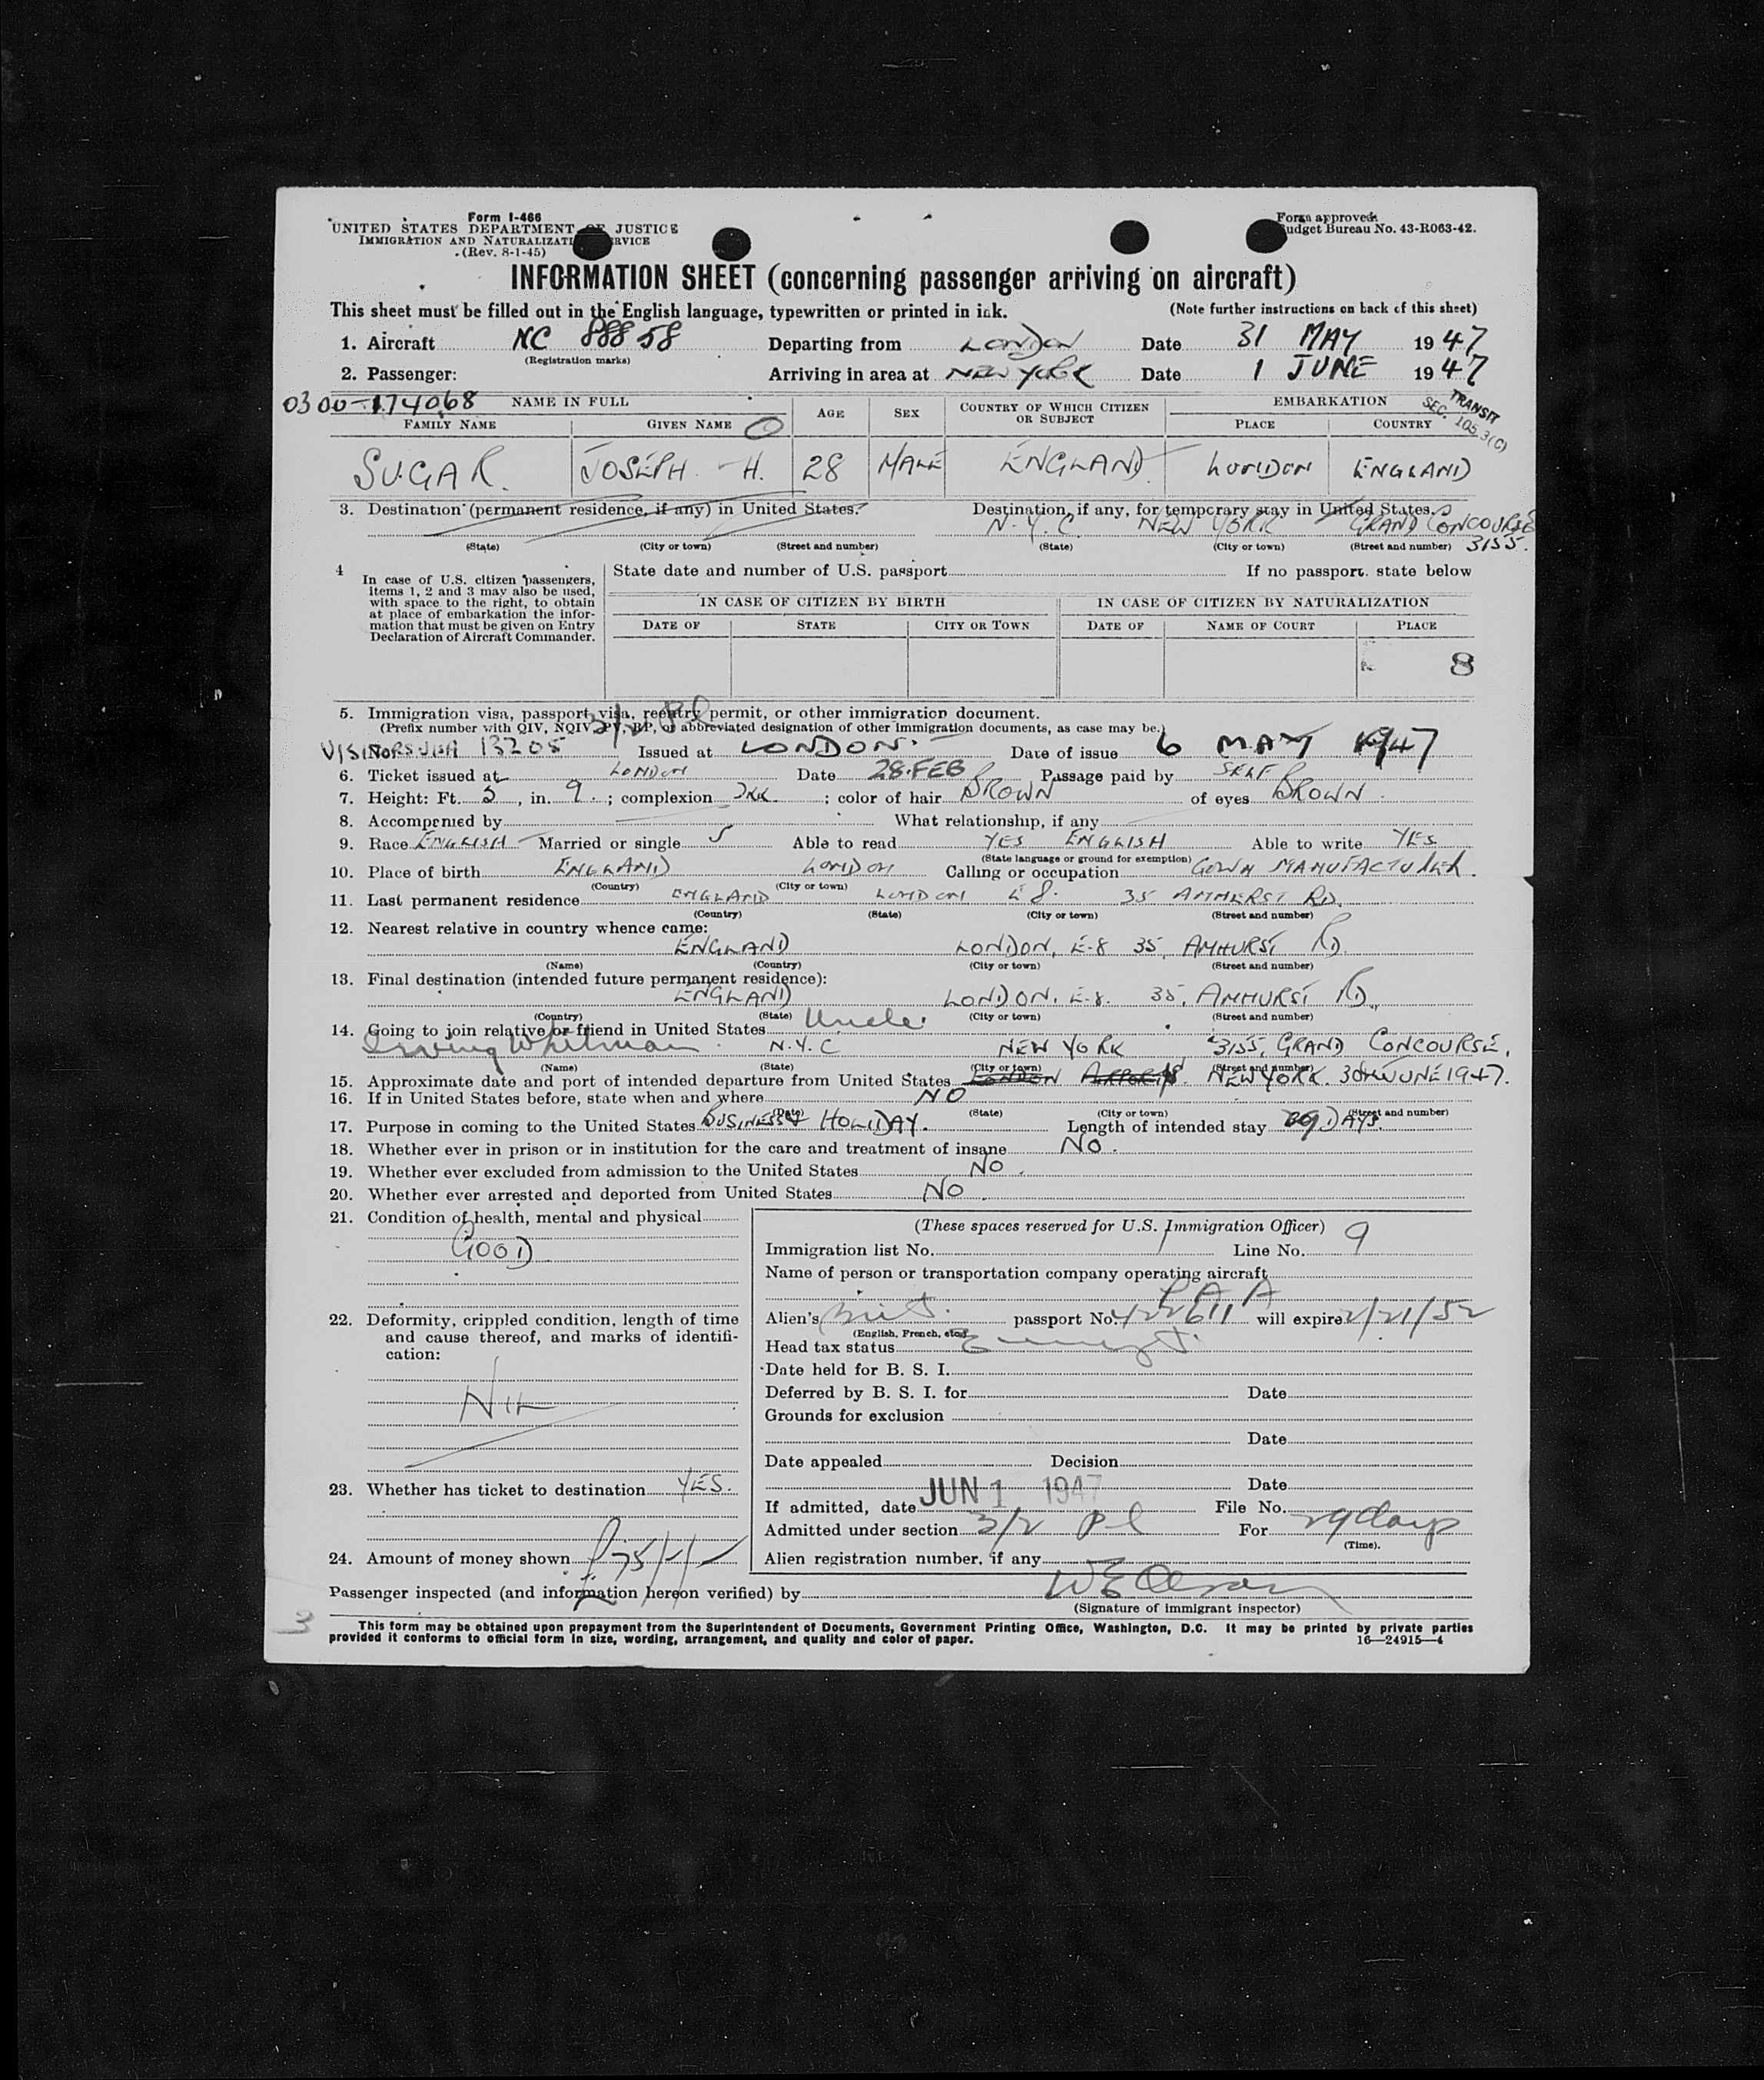 Form I-466
UNITED STATES DEPARTMENT OF JUSTICE
IMMIGRATION AND NATURALIZATION SERVICE
(Rev. 8-1-45)
Form approved.
Budget Bureau No. 43-R063-42.
INFORMATION SHEET (concerning passenger arriving on aircraft)
This sheet must be filled out in the English language, typewritten or printed in ink. (Note further instructions on back of this sheet)
1. Aircraft NC 88858 Departing from LONDON Date 31 MAY 1947
(Registration marks)
2. Passenger: Arriving in area at NEW YORK Date 1 JUNE 1947
0300-174068 NAME IN FULL AGE SEX COUNTRY OF WHICH CITIZEN OR SUBJECT EMBARKATION
TRANSIT SEC. 105.3(C)
FAMILY NAME GIVEN NAME PLACE COUNTRY
SUGAR. JOSEPH H. 28 MALE ENGLAND LONDON ENGLAND
3. Destination (permanent residence, if any) in United States. Destination, if any, for temporary stay in United States.
N.Y.C. NEW YORK GRAND CONCOURSE
(State) (City or town) (Street and number) (State) (City or town) (Street and number) 3155.
4 In case of U.S. citizen passengers, items 1, 2 and 3 may also be used, with space to the right, to obtain at place of embarkation the information that must be given on Entry Declaration of Aircraft Commander.
State date and number of U.S. passport If no passport, state below
IN CASE OF CITIZEN BY BIRTH IN CASE OF CITIZEN BY NATURALIZATION
DATE OF STATE CITY OR TOWN DATE OF NAME OF COURT PLACE
8
5. Immigration visa, passport visa, reentry permit, or other immigration document.
3/2 Pl
(Prefix number with QIV, NQIV, PV, RP, or abbreviated designation of other immigration documents, as case may be.)
VISITORS VISA No. 13205 Issued at LONDON. Date of issue 6 MAY 1947
6. Ticket issued at LONDON Date 28.FEB Passage paid by SELF
7. Height: Ft. 5, in. 9.; complexion DKK.; color of hair BROWN of eyes BROWN.
8. Accompanied by What relationship, if any
9. Race ENGLISH Married or single S Able to read YES ENGLISH Able to write YES
(State language or ground for exemption)
10. Place of birth ENGLAND LONDON Calling or occupation GOWN MANUFACTURER.
(Country) (City or town)
11. Last permanent residence ENGLAND LONDON E8. 35 AMHERST RD.
(Country) (State) (City or town) (Street and number)
12. Nearest relative in country whence came:
ENGLAND LONDON, E-8 35, AMHURST RD.
(Name) (Country) (City or town) (Street and number)
13. Final destination (intended future permanent residence):
ENGLAND LONDON. E-8. 35, AMHURST RD.,
(Country) (State) (City or town) (Street and number)
14. Going to join relative or friend in United States Uncle.
Irving Whitman. N.Y.C NEW YORK 3155, GRAND CONCOURSE,
(Name) (State) (City or town) (Street and number)
15. Approximate date and port of intended departure from United States LONDON AIRPORT NEW YORK. 30th JUNE 1947.
16. If in United States before, state when and where NO
(Date) (State) (City or town) (Street and number)
17. Purpose in coming to the United States BUSINESS & HOLIDAY. Length of intended stay 29 DAYS.
18. Whether ever in prison or in institution for the care and treatment of insane NO.
19. Whether ever excluded from admission to the United States NO.
20. Whether ever arrested and deported from United States NO.
21. Condition of health, mental and physical
GOOD
22. Deformity, crippled condition, length of time and cause thereof, and marks of identification:
NIL
23. Whether has ticket to destination YES.
24. Amount of money shown £75/-/-
(These spaces reserved for U.S. Immigration Officer)
Immigration list No. 1 Line No. 9
Name of person or transportation company operating aircraft
P A A
Alien's Brit. passport No. 422611 will expire 2/21/52
(English, French, etc.)
Head tax status Exempt.
Date held for B. S. I.
Deferred by B. S. I. for Date
Grounds for exclusion
Date
Date appealed Decision
Date
If admitted, date JUN 1 1947 File No.
Admitted under section 3/2 Pl For 29 days
(Time).
Alien registration number, if any
Passenger inspected (and information hereon verified) by
(Signature of immigrant inspector)
3
This form may be obtained upon prepayment from the Superintendent of Documents, Government Printing Office, Washington, D.C. It may be printed by private parties
provided it conforms to official form in size, wording, arrangement, and quality and color of paper. 16—24915—4